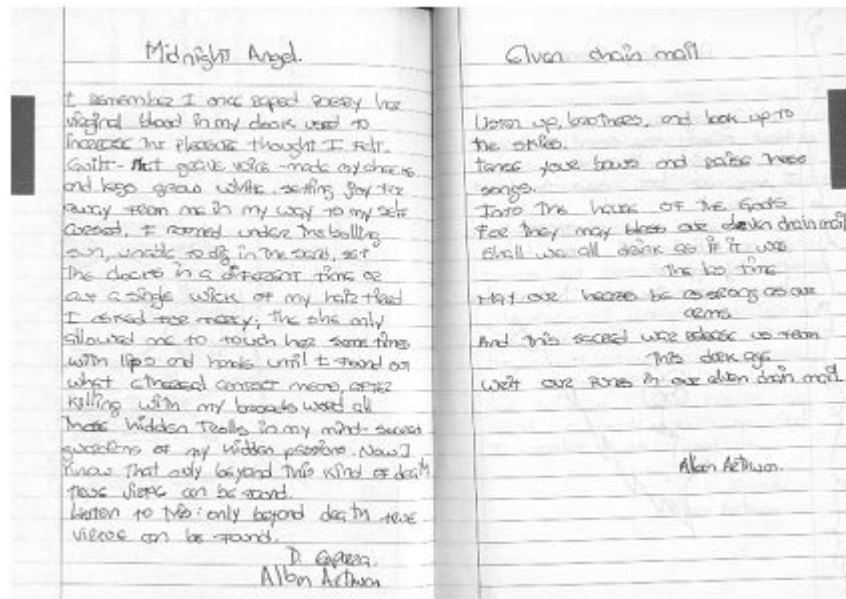 Midnight Angel.
I remember I once raped Poetry her
virginal blood in my desk used to
increase the pleasure thought I felt.
Guilt - that grave voice - made my cheeks
and legs grow white, setting joy far
away from me in my way to my self
cursed, I roamed under the boiling
sun, unable to dig in the sand, set
the clocks in a different time or
cut a single wick of my hair tired
I asked for mercy; the she only
allowed me to touch her some times
with lips and hands until I found out
what ethereal contact means, after
killing with my broads word all
those hidden Trolls in my mind - secret
guardians of my hidden passions. Now I
know that only beyond this kind of death
true virtue can be found.
Listen to this: only beyond death true
virtue can be found.
D.
Allan
Elven chain mail
Listen up, brothers, and look up to
the skies.
Tense your bows and raise these
songs.
Into the house of the Gods
For they may bless our elven chain mail
Shall we all drink as if it was
the last time
May our hearts be as strong as our
arms
And this sacred war release us from
this dark age
our runes in our elven chain mail
Allan